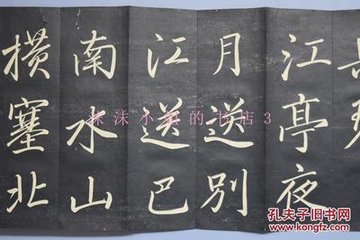 江亭夜
月送别
江送巴
南水山
横塞北
沫沫小
的书店3
孔夫子旧书网